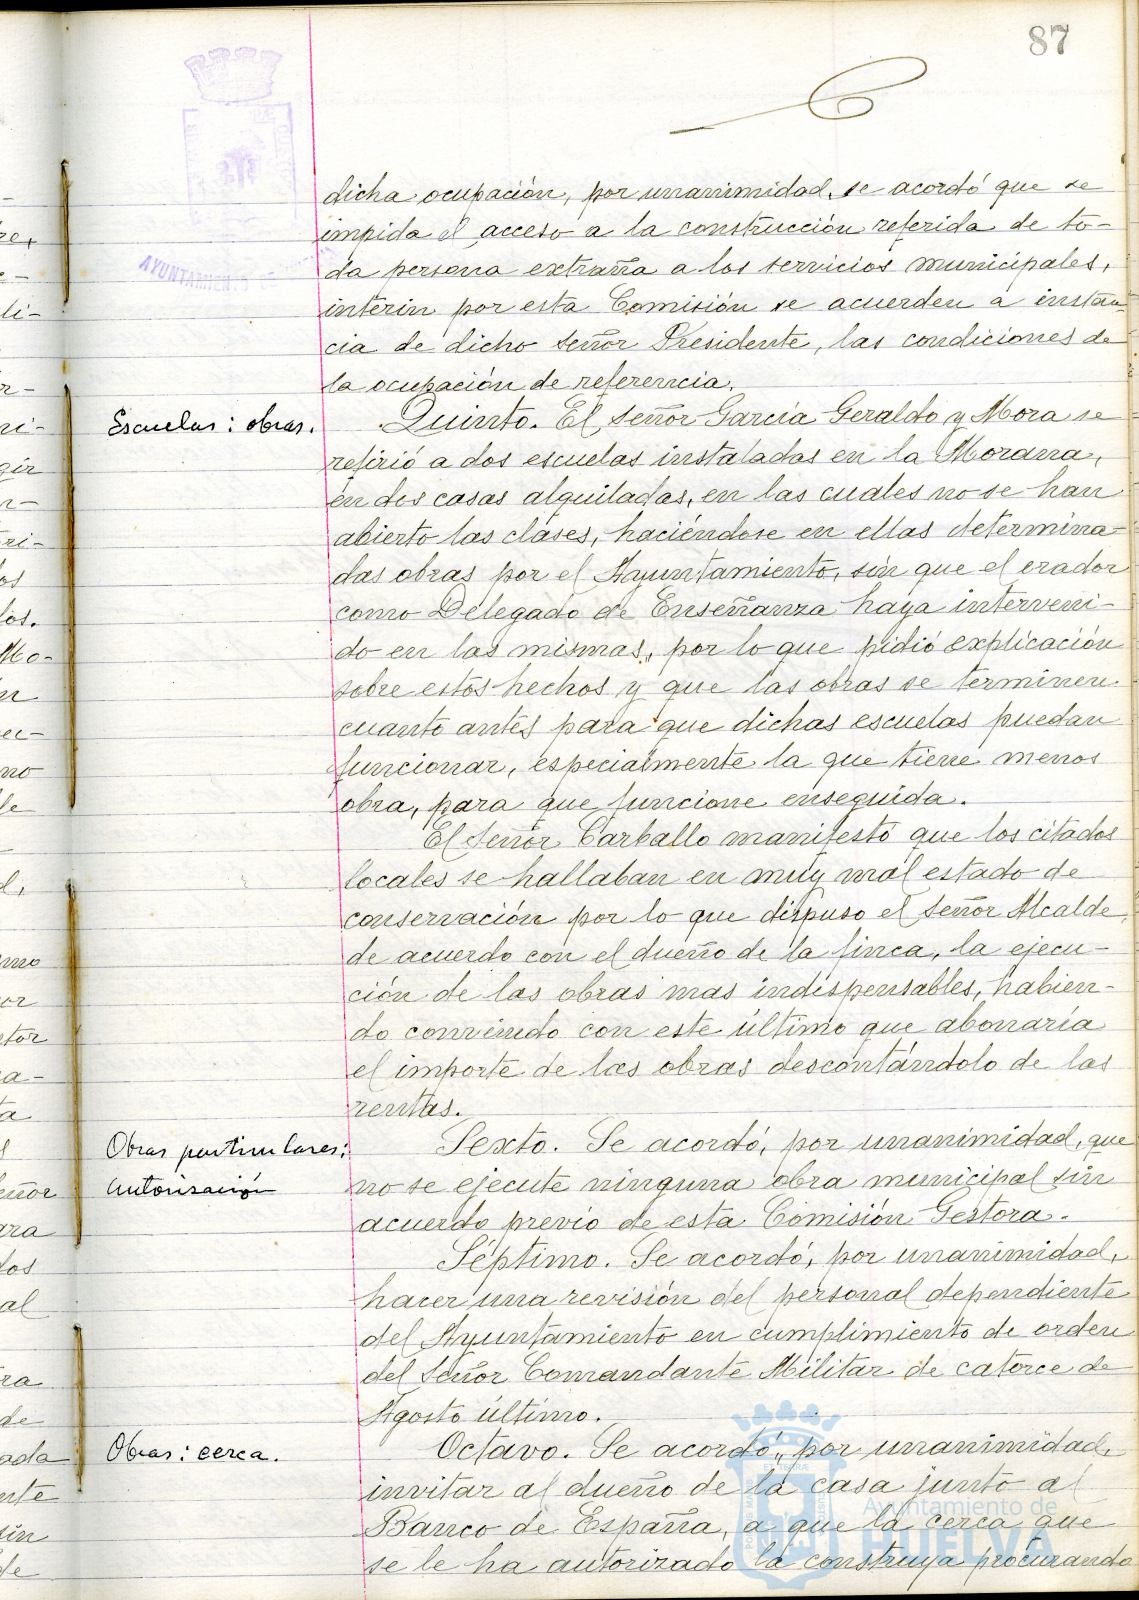 87
dicha ocupación, por unanimidad, se acordó que se
impida el acceso a la construcción referida de to-
da persona extraña a los servicios municipales,
interin por esta Comisión se acuerden a instan-
cia de dicho señor Presidente, las condiciones de
la ocupación de referencia.
Escuelas: obras.
Quinto. El señor García Geraldo y Mora se
refirió a dos escuelas instaladas en la Morana,
en dos casas alquiladas, en las cuales no se han
abierto las clases, haciéndose en ellas determina-
das obras por el Ayuntamiento, sin que el orador
como Delegado de Enseñanza haya interveni-
do en las mismas, por lo que pidió explicación
sobre estos hechos y que las obras se terminen
cuanto antes para que dichas escuelas puedan
funcionar, especialmente la que tiene menos
obra, para que funcione enseguida.
El señor Carballo manifestó que los citados
locales se hallaban en muy mal estado de
conservación por lo que dispuso el señor Alcalde,
de acuerdo con el dueño de la finca, la ejecu-
ción de las obras mas indispensables, habien-
do convenido con este último que abonaría
el importe de las obras descontándolo de las
rentas.
Obras particulares:
autorisación
Sexto. Se acordó, por unanimidad, que
no se ejecute ninguna obra municipal sin
acuerdo previo de esta Comisión Gestora.
Séptimo. Se acordó, por unanimidad,
hacer una revisión del personal dependiente
del Ayuntamiento en cumplimiento de orden
del señor Comandante Militar de catorce de
Agosto último.
Obras: cerca.
Octavo. Se acordó, por unanimidad,
invitar al dueño de la casa junto al
Banco de España, a que la cerca que
se le ha autorizado la construya procurando
AYUNTAMIENTO
Ayuntamiento de
HUELVA